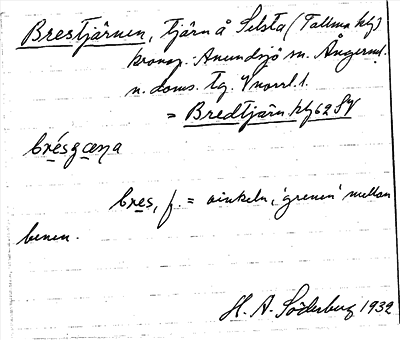 Brestjärnen, tjärn å Selsta (Tallma klg)
kronop. Anundsjö sn. Ångerml.
n. doms. tg. V norrl. l.
= Bredtjärn klg 62 SV
bres, f. = vinkeln, 'grenen' mellan
benen.
H. A. Söderberg 1932